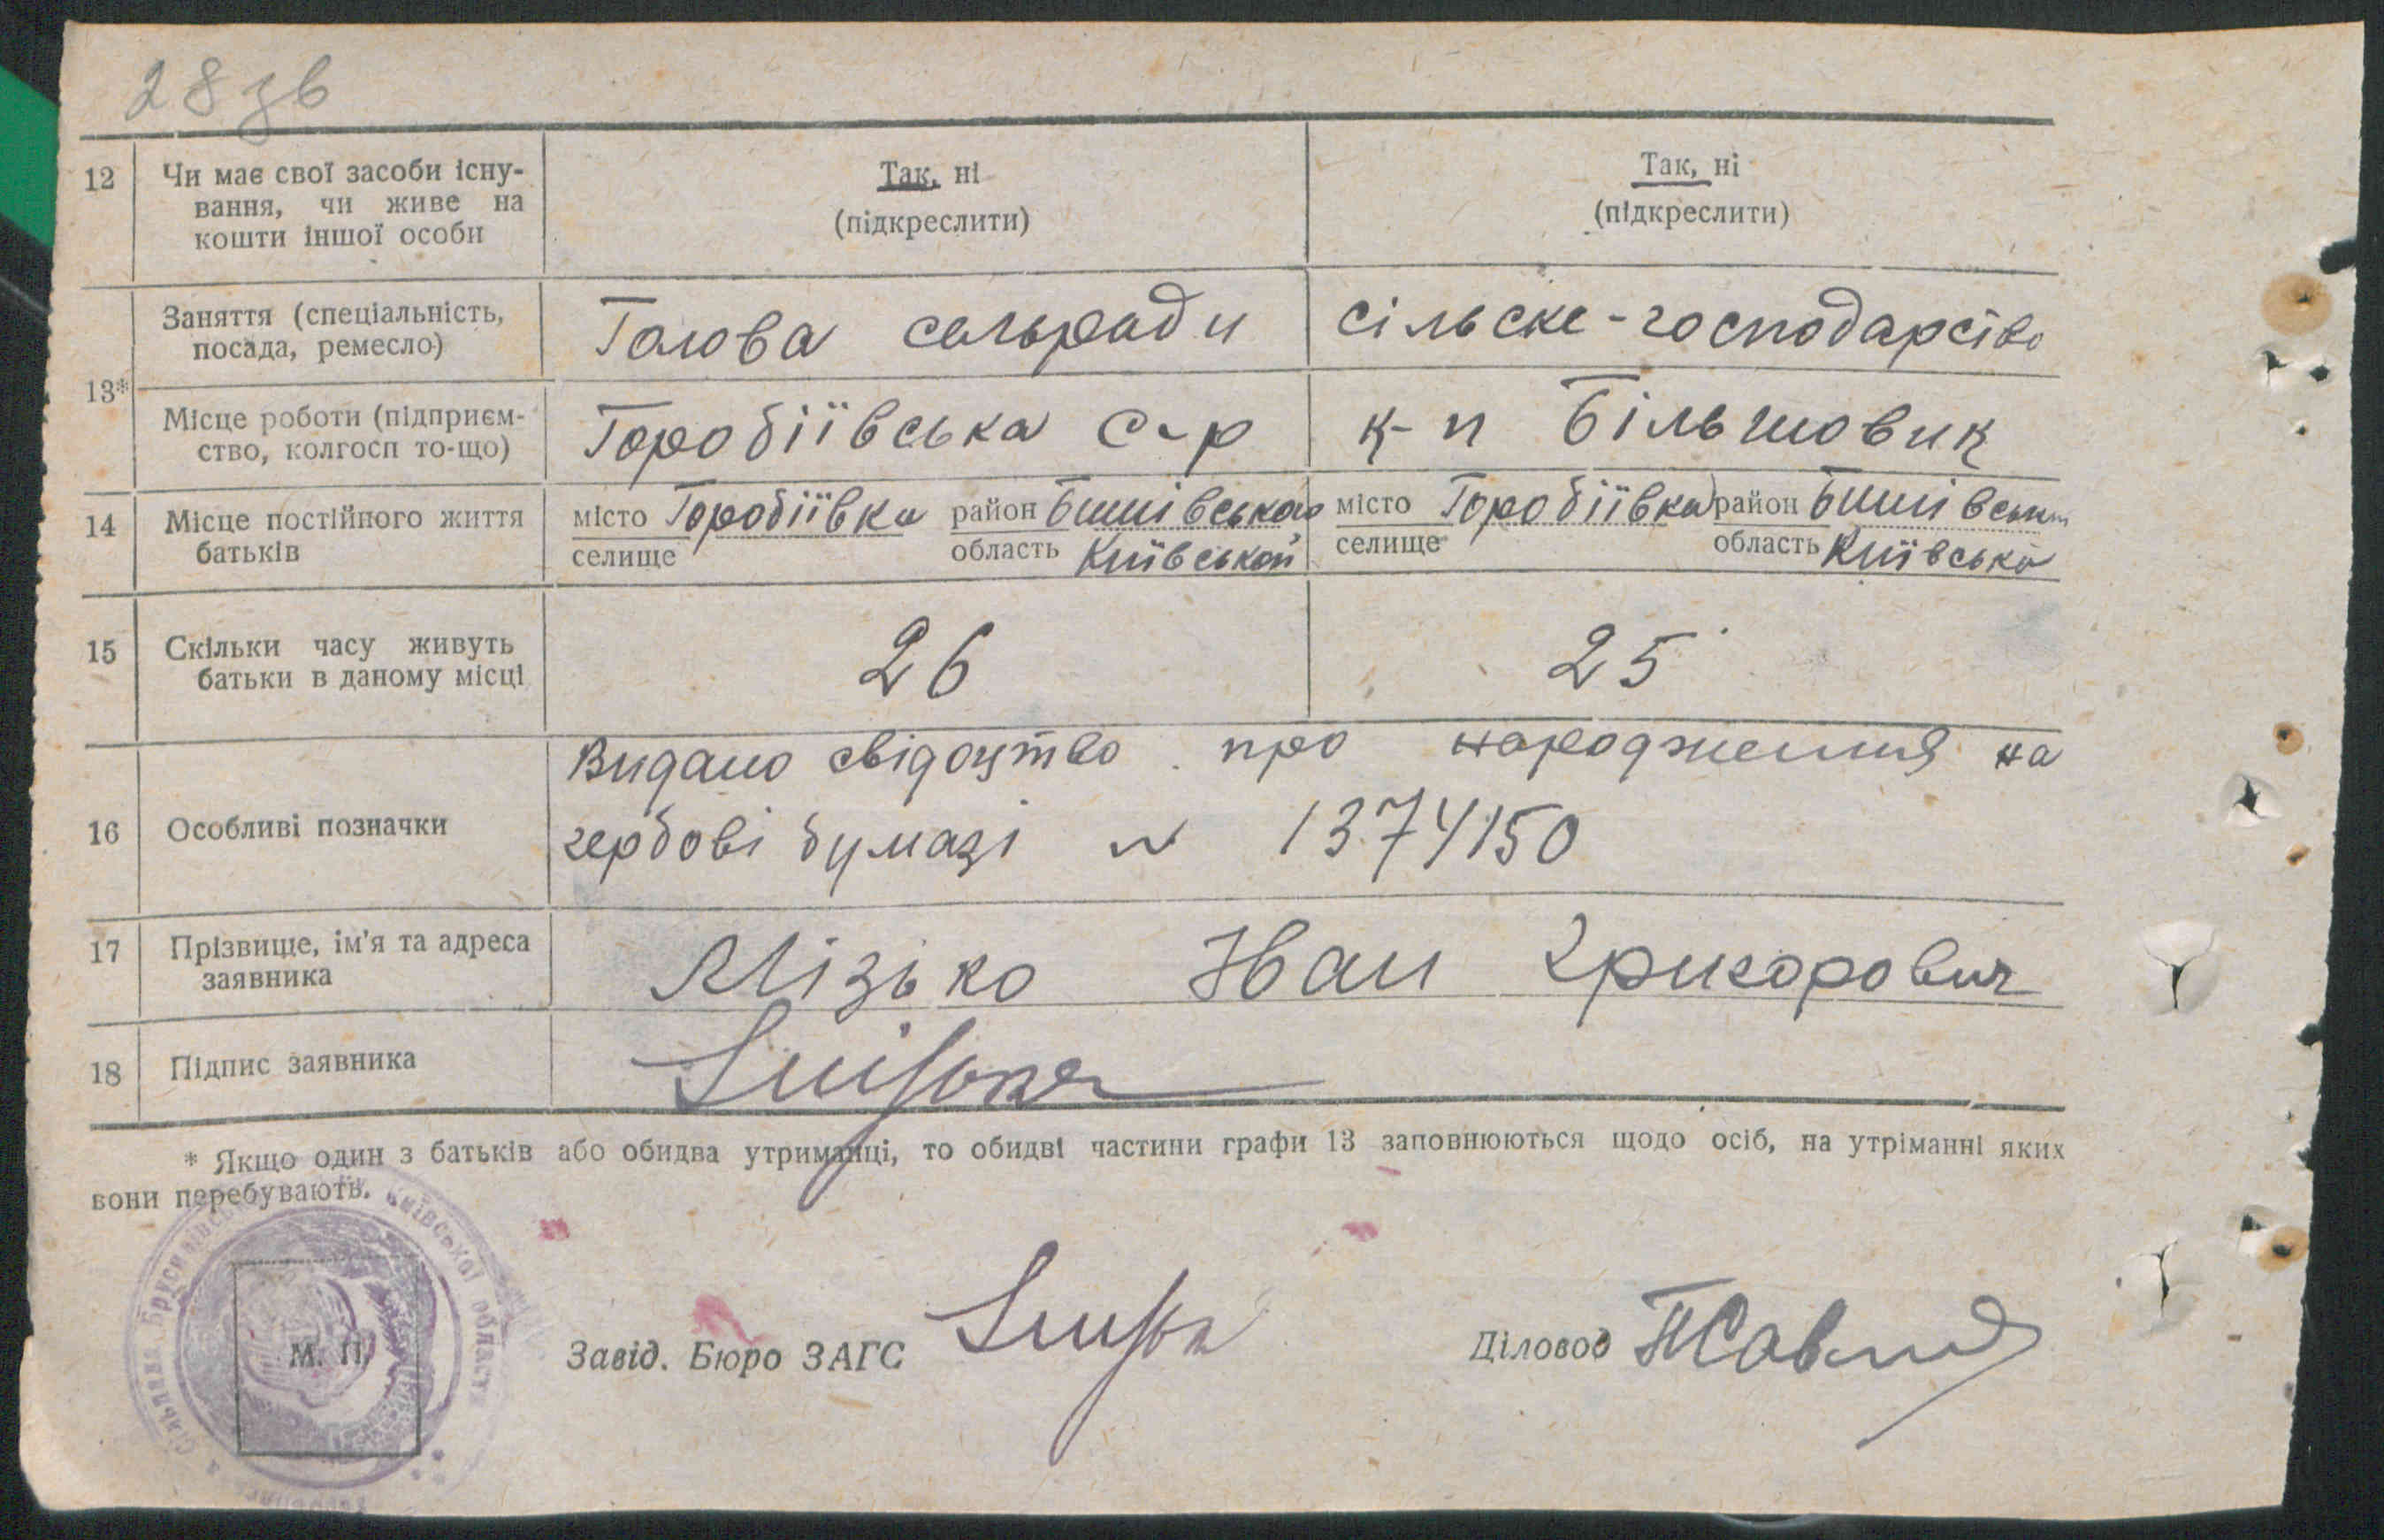 28 зв
12 Чи має свої засоби існу-
вання, чи живе на
кошти іншої особи
Так, ні
(підкреслити)
Так, ні
(підкреслити)
13*
Заняття (спеціальність,
посада, ремесло)
Голова сельради
сільске-господарство
Місце роботи (підприєм-
ство, колгосп то-що)
Горобіївська с-р
к-п Більшовик
14 Місце постійного життя
батьків
місто Горобіївка район
селище область Київської
місто Горобіївка район
селище область Київсько
15 Скільки часу живуть
батьки в даному місці
26
25
16 Особливі позначки
Видано свідоцтво про народження на
гербові бумазі № 1374150
17 Прізвище, ім'я та адреса
заявника
Мізько Іван Григорович
18 Підпис заявника
* Якщо один з батьків або обидва утриманці, то обидві частини графи 13 заповнюються щодо осіб, на утріманні яких
вони перебувають.
Київської області
М. П.
Завід. Бюро ЗАГС
Діловод